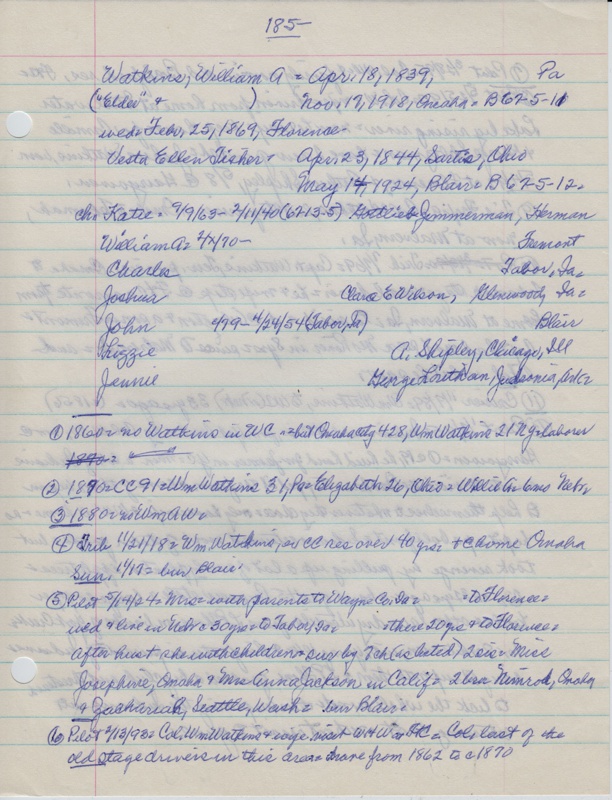 185-
Watkins, William A = Apr. 18, 1839, Pa
("Elder" + ) Nov. 17, 1918, Omaha = B 67-5-11
wed = Feb. 25, 1869, Florence-
Vesta Ellen Fisher = Apr. 23, 1844, Sartis, Ohio
May 14 1924, Blair = B 67-5-12=
ch = Katie = 9/9/63 - 2/11/40 (67-13-5) Gottlieb Zimmerman, Herman
William A = 2/ /70- Fremont
Charles Tabor, Ia=
Joshua Clara E Wilson, Glenwood, Ia=
John 4/79 - 4/24/54 (Tabor, Ia) Blair
Lizzie A. Shipley, Chicago, Ill
Jennie George Louthan, Judsonia, Ark=
① 1860 = no Watkins in WC = but Omaha city 428, Wm Watkins 21 NY = laborer
1870 =
② 1870 = CC 91 = Wm Watkins 31, Pa = Elizabeth 26, Ohio = Willie A = 6mo Nebr,
③ 1880 = no Wm A W=
④ Trib 11/21/18 = Wm Watkins, CC res over 40 yrs = home Omaha
Sun, 11/17 = bur Blair.
⑤ Pilot 5/14/24 = Mrs = with parents to Wayne Co, Ia = = to Florence =
wed & live in Nebr = 30 yrs = to Tabor, Ia = = there 20 yrs & to Florence =
after husb she with children = sur by 7 ch (as listed) 2 sis = Miss
Josephine, Omaha & Mrs Anna Jackson in Calif = 2 bro = Nimrod, Omaha
& Zachariah, Seattle, Wash = bur Blair =
⑥ Pilot 2/13/93 = Col. Wm Watkins & wife visit WHW = = Col. last of the
old stage drivers in this area = drove from 1862 to c1870